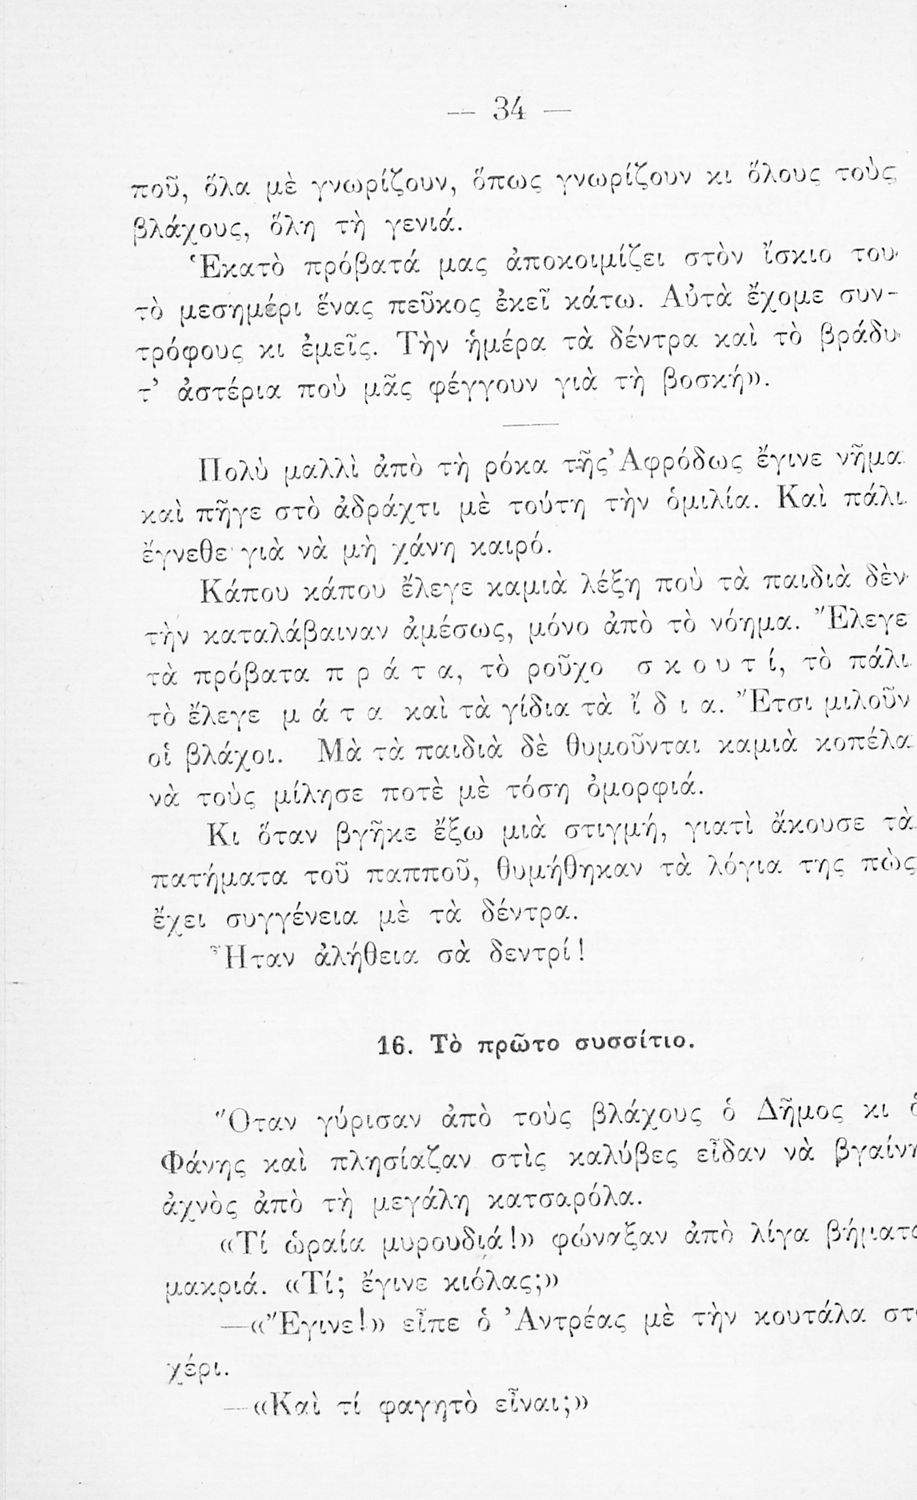 — 34 —
ποῦ, ὅλα μὲ γνωρίζουν, ὅπως γνωρίζουν κι ὅλους τοὺς
βλάχους, ὅλη τὴ γενιά.
Ἑκατὸ πρόβατά μας ἀποκοιμίζει στὸν ἴσκιο του
τὸ μεσημέρι ἕνας πεῦκος ἐκεῖ κάτω. Αὐτὰ ἔχομε συν-
τρόφους κι ἐμεῖς. Τὴν ἡμέρα τὰ δέντρα καὶ τὸ βράδυ
τ’ ἀστέρια ποὺ μᾶς φέγγουν γιὰ τὴ βοσκή».
Πολὺ μαλλὶ ἀπὸ τὴ ρόκα τῆς Ἀφρόδως ἔγινε νῆμα
καὶ πῆγε στὸ ἀδράχτι μὲ τούτη τὴν ὁμιλία. Καὶ πάλι
ἔγνεθε γιὰ νὰ μὴ χάνη καιρό.
Κάπου κάπου ἔλεγε καμιὰ λέξη ποὺ τὰ παιδιὰ δὲν
τὴν καταλάβαιναν ἀμέσως, μόνο ἀπὸ τὸ νόημα. Ἔλεγε
τὰ πρόβατα π ρ ά τ α, τὸ ροῦχο σ κ ο υ τ ί, τὸ πάλι
τὸ ἔλεγε μ ά τ α καὶ τὰ γίδια τὰ ἴ δ ι α. Ἔτσι μιλοῦν
οἱ βλάχοι. Μὰ τὰ παιδιὰ δὲ θυμοῦνται καμιὰ κοπέλα
νὰ τοὺς μίλησε ποτὲ μὲ τόση ὀμορφιά.
Κι ὅταν βγῆκε ἔξω μιὰ στιγμή, γιατὶ ἄκουσε τὰ
πατήματα τοῦ παπποῦ, θυμήθηκαν τὰ λόγια της πὼς
ἔχει συγγένεια μὲ τὰ δέντρα.
Ἦταν ἀλήθεια σὰ δεντρί!
16. Τὸ πρῶτο συσσίτιο.
Ὅταν γύρισαν ἀπὸ τοὺς βλάχους ὁ Δῆμος κι ὁ
Φάνης καὶ πλησίαζαν στὶς καλύβες εἶδαν νὰ βγαίνη
ἀχνὸς ἀπὸ τὴ μεγάλη κατσαρόλα.
«Τί ὡραία μυρουδιά!» φώναξαν ἀπὸ λίγα βήματα
μακριά. «Τί; ἔγινε κιόλας;»
—«Ἔγινε!» εἶπε ὁ Ἀντρέας μὲ τὴν κουτάλα στ
χέρι.
—«Καὶ τί φαγητὸ εἶναι;»